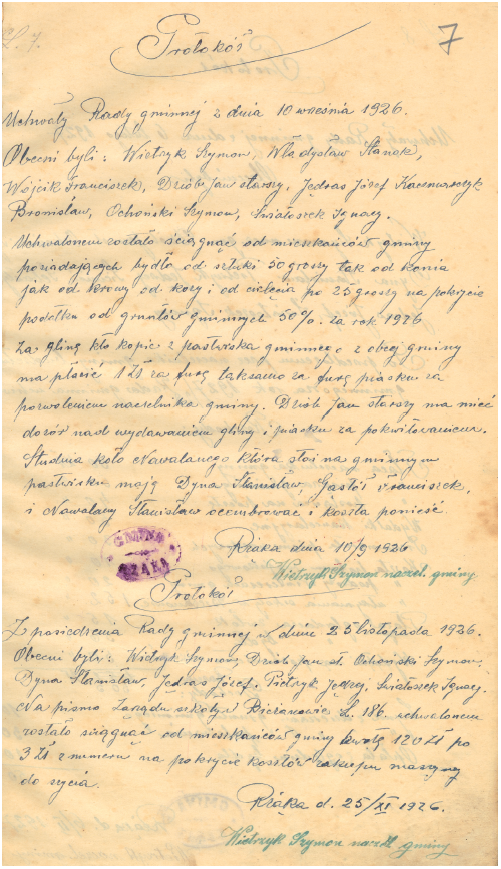 L. 7.
7
Protokół
Uchwały Rady gminnej z dnia 10 września 1926.
Obecni byli: Wietrzyk Szymon, Władysław Stanek,
Wójcik Franciszek, Dziób Jan starszy, Jędras Józef Kaczmarczyk
Bronisław, Ochoński Szymon, Światoszek Ignacy.
Uchwalonem zostało ściągnąć od mieszkańców gminy
posiadających bydło od sztuki 50 groszy tak od konia
jak od krowy od kozy i od cielęcia po 25 groszy na pokrycie
podatku od gruntów gminnych 50%. za rok 1926
Za glinę kto kopie z pastwiska gminnego z obcej gminy
ma płacić 1 Zł za furę taksamo za furę piasku za
pozwoleniem naczelnika gminy. Dziób Jan starszy ma mieć
dozór nad wydawaniem gliny i piasku za pokwitowaniem.
Studnia koło Nawalanego która stoi na gminnym
pastwisku mają Dyna Stanisław, Gastół Franciszek,
i Nawalany Stanisław ocembrować i koszta ponieść.
Rżąka dnia 10/9 1926
GMINA
RŻĄKA
Wietrzyk Szymon naczel. gminy
Protokół
Z posiedzenia Rady gminnej w dniu 25 listopada 1926.
Obecni byli: Wietrzyk Szymon, Dziob Jan st. Ochoński Szymon,
Dyna Stanisław, Jędras Józef, Pietrzyk Jędrzej, Światoszek Ignacy.
Na pismo Zarządu szkoły w Bieżanowie L. 186. uchwalonem
zostało ściągnąć od mieszkańców gminy kwotę 120 Zł po
3 Zł z numeru na pokrycie kosztów zakupu maszyny
do szycia.
Rżąka d. 25/XI 1926.
Wietrzyk Szymon naczel gminy